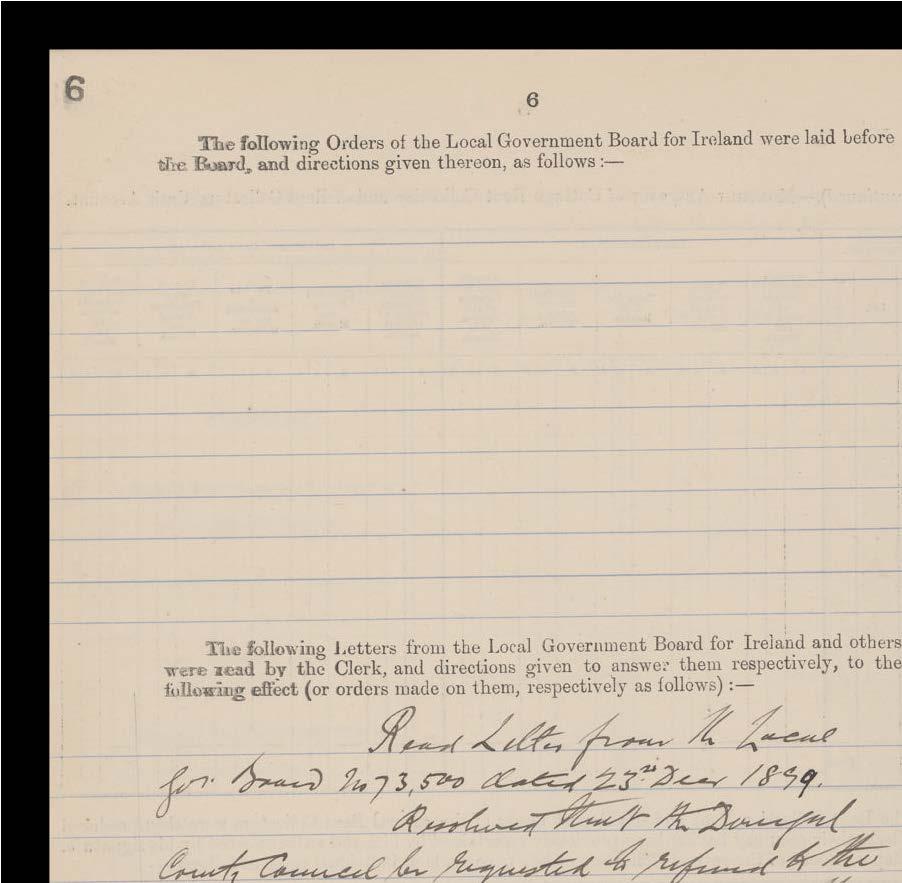 6
6
The following Orders of the Local Government Board for Ireland were laid before
the Board, and directions given thereon, as follows :—
The following Letters from the Local Government Board for Ireland and others
were read by the Clerk, and directions given to answer them respectively, to the
following effect (or orders made on them, respectively as follows) :—
Read Letter from the Local
Gov Board No 73,500 dated 23rd Decr 1899.
Resolved that the Donegal
County Council be requested to refund to the